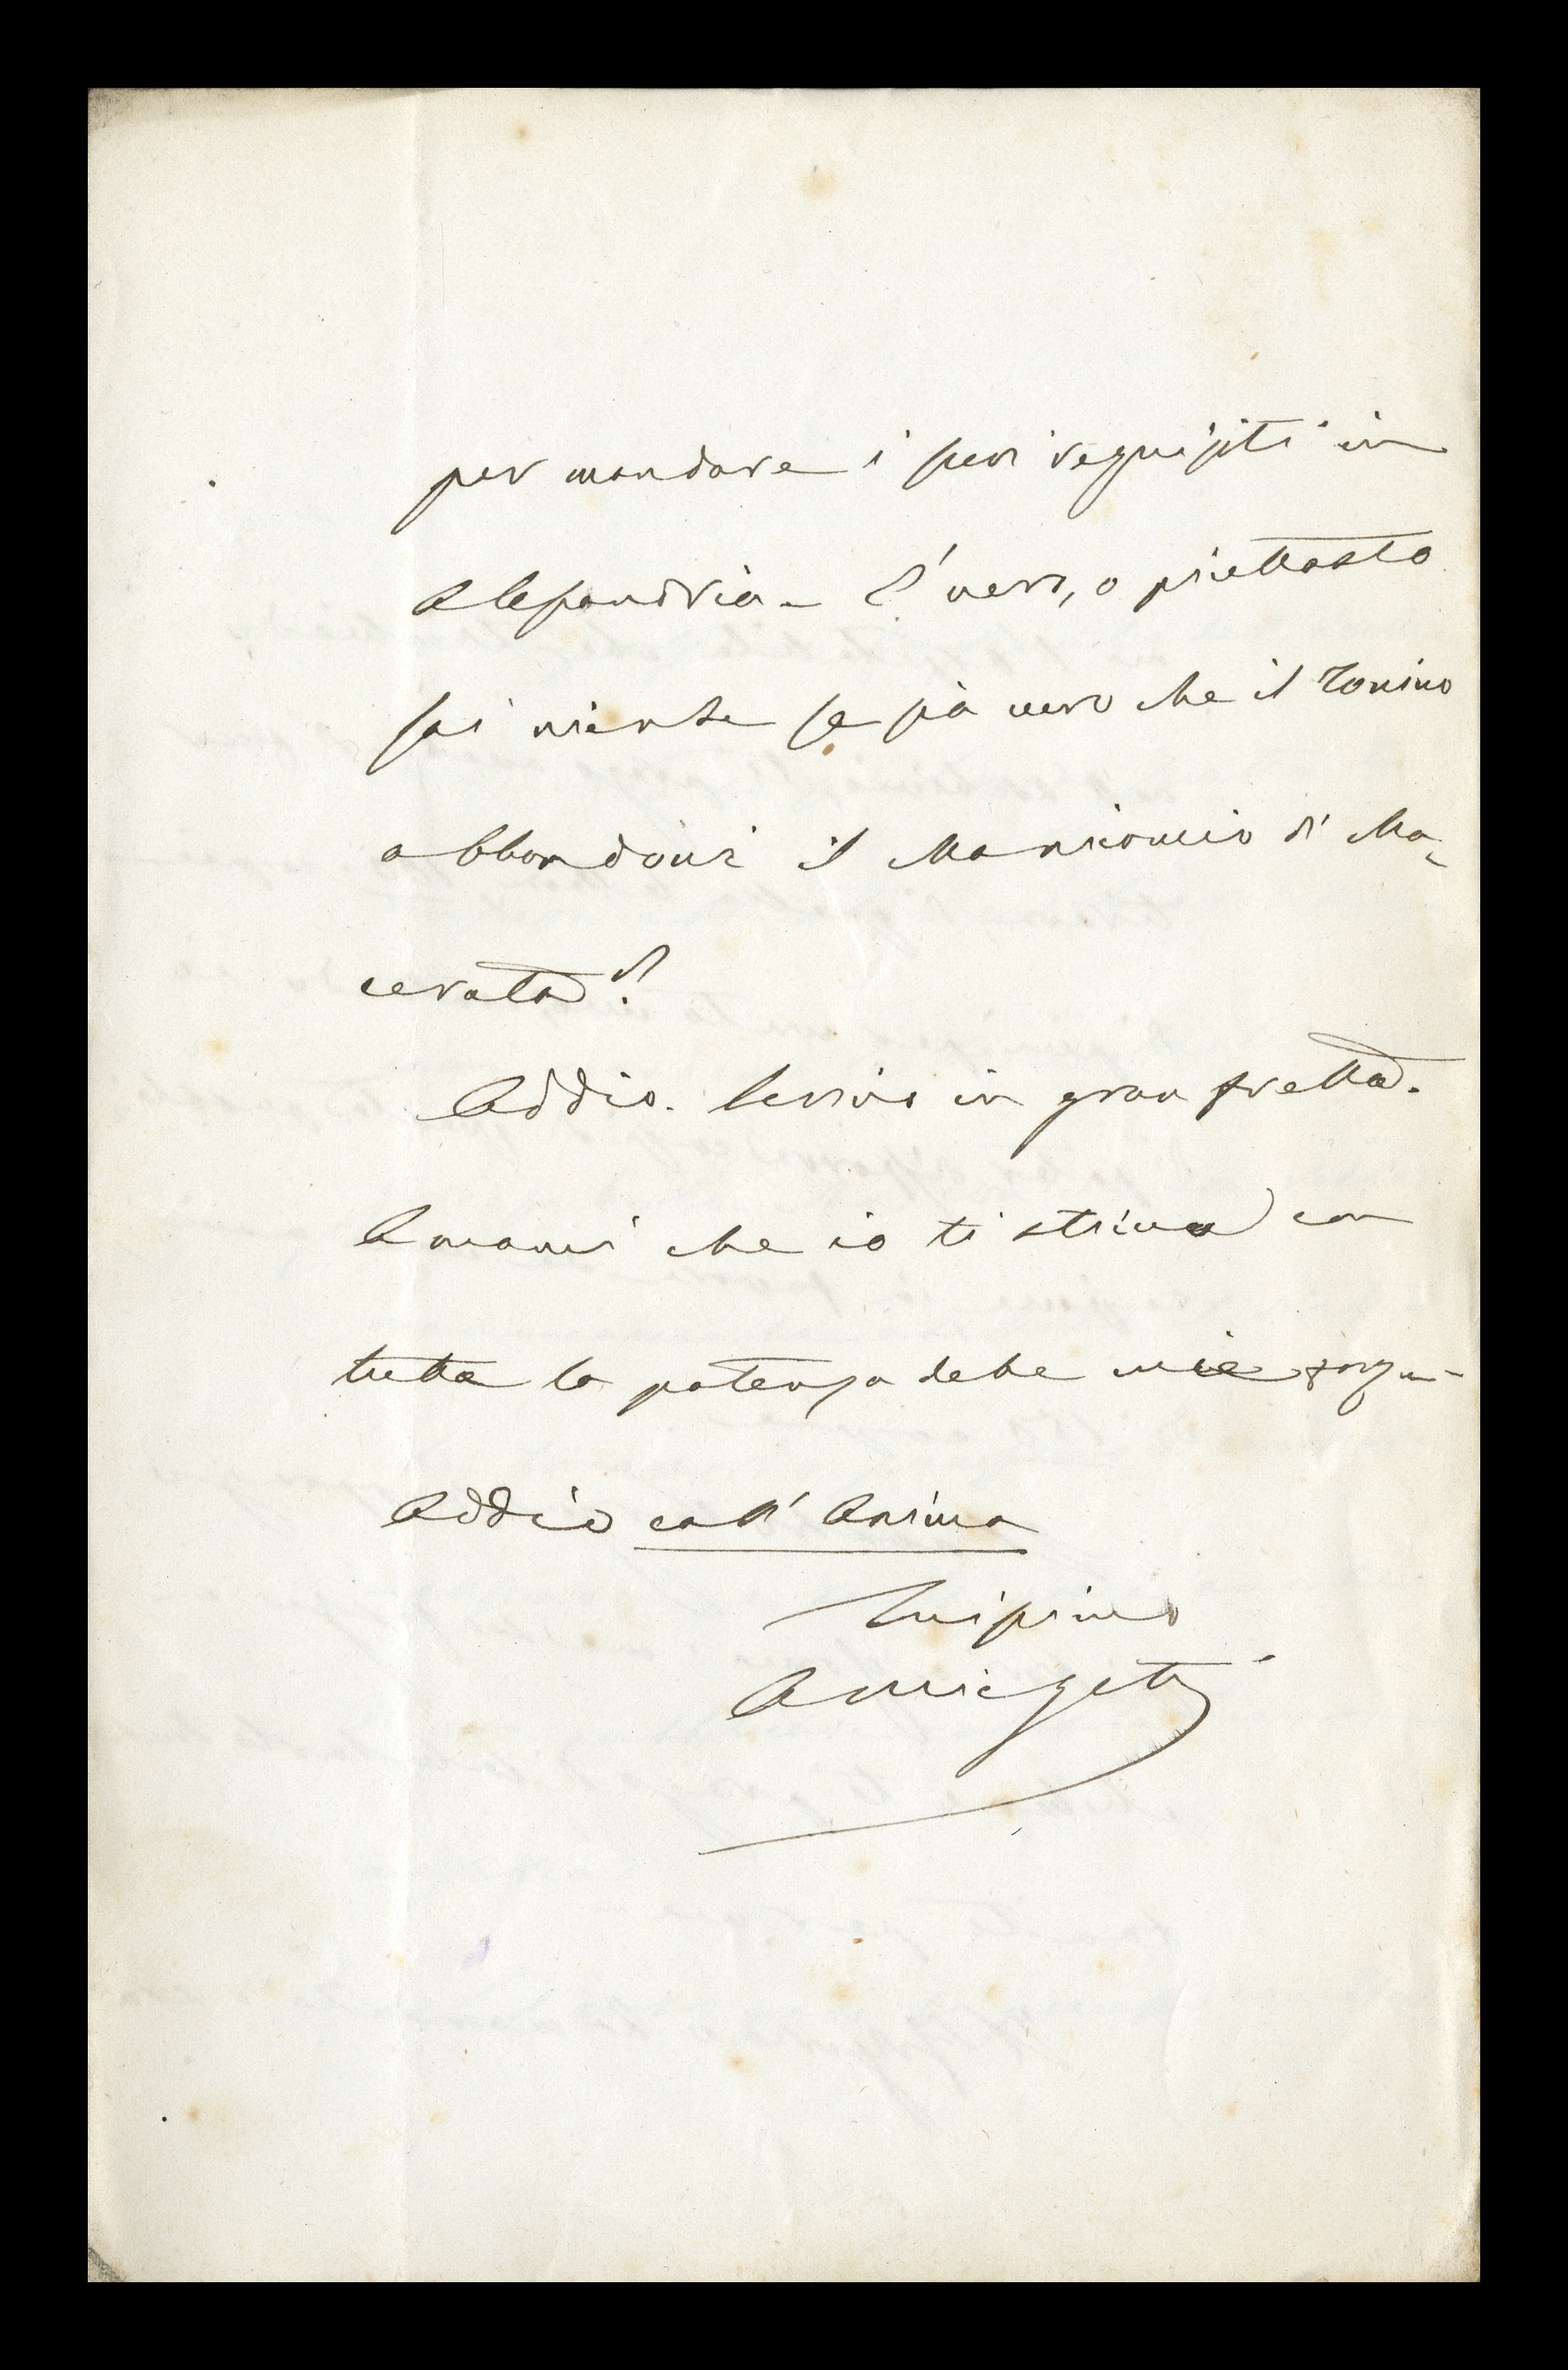 per mandare i suoi requisiti in
Alessandria - È vero, o piuttosto
sai niente se sia vero che il Tonino
abbandoni il Manicomio di Ma-
cerata?
Addio. Scrivo in gran fretta.
Amami che io ti stimo con
tutta la potenza delle mie forze -
Addio coll' Anima